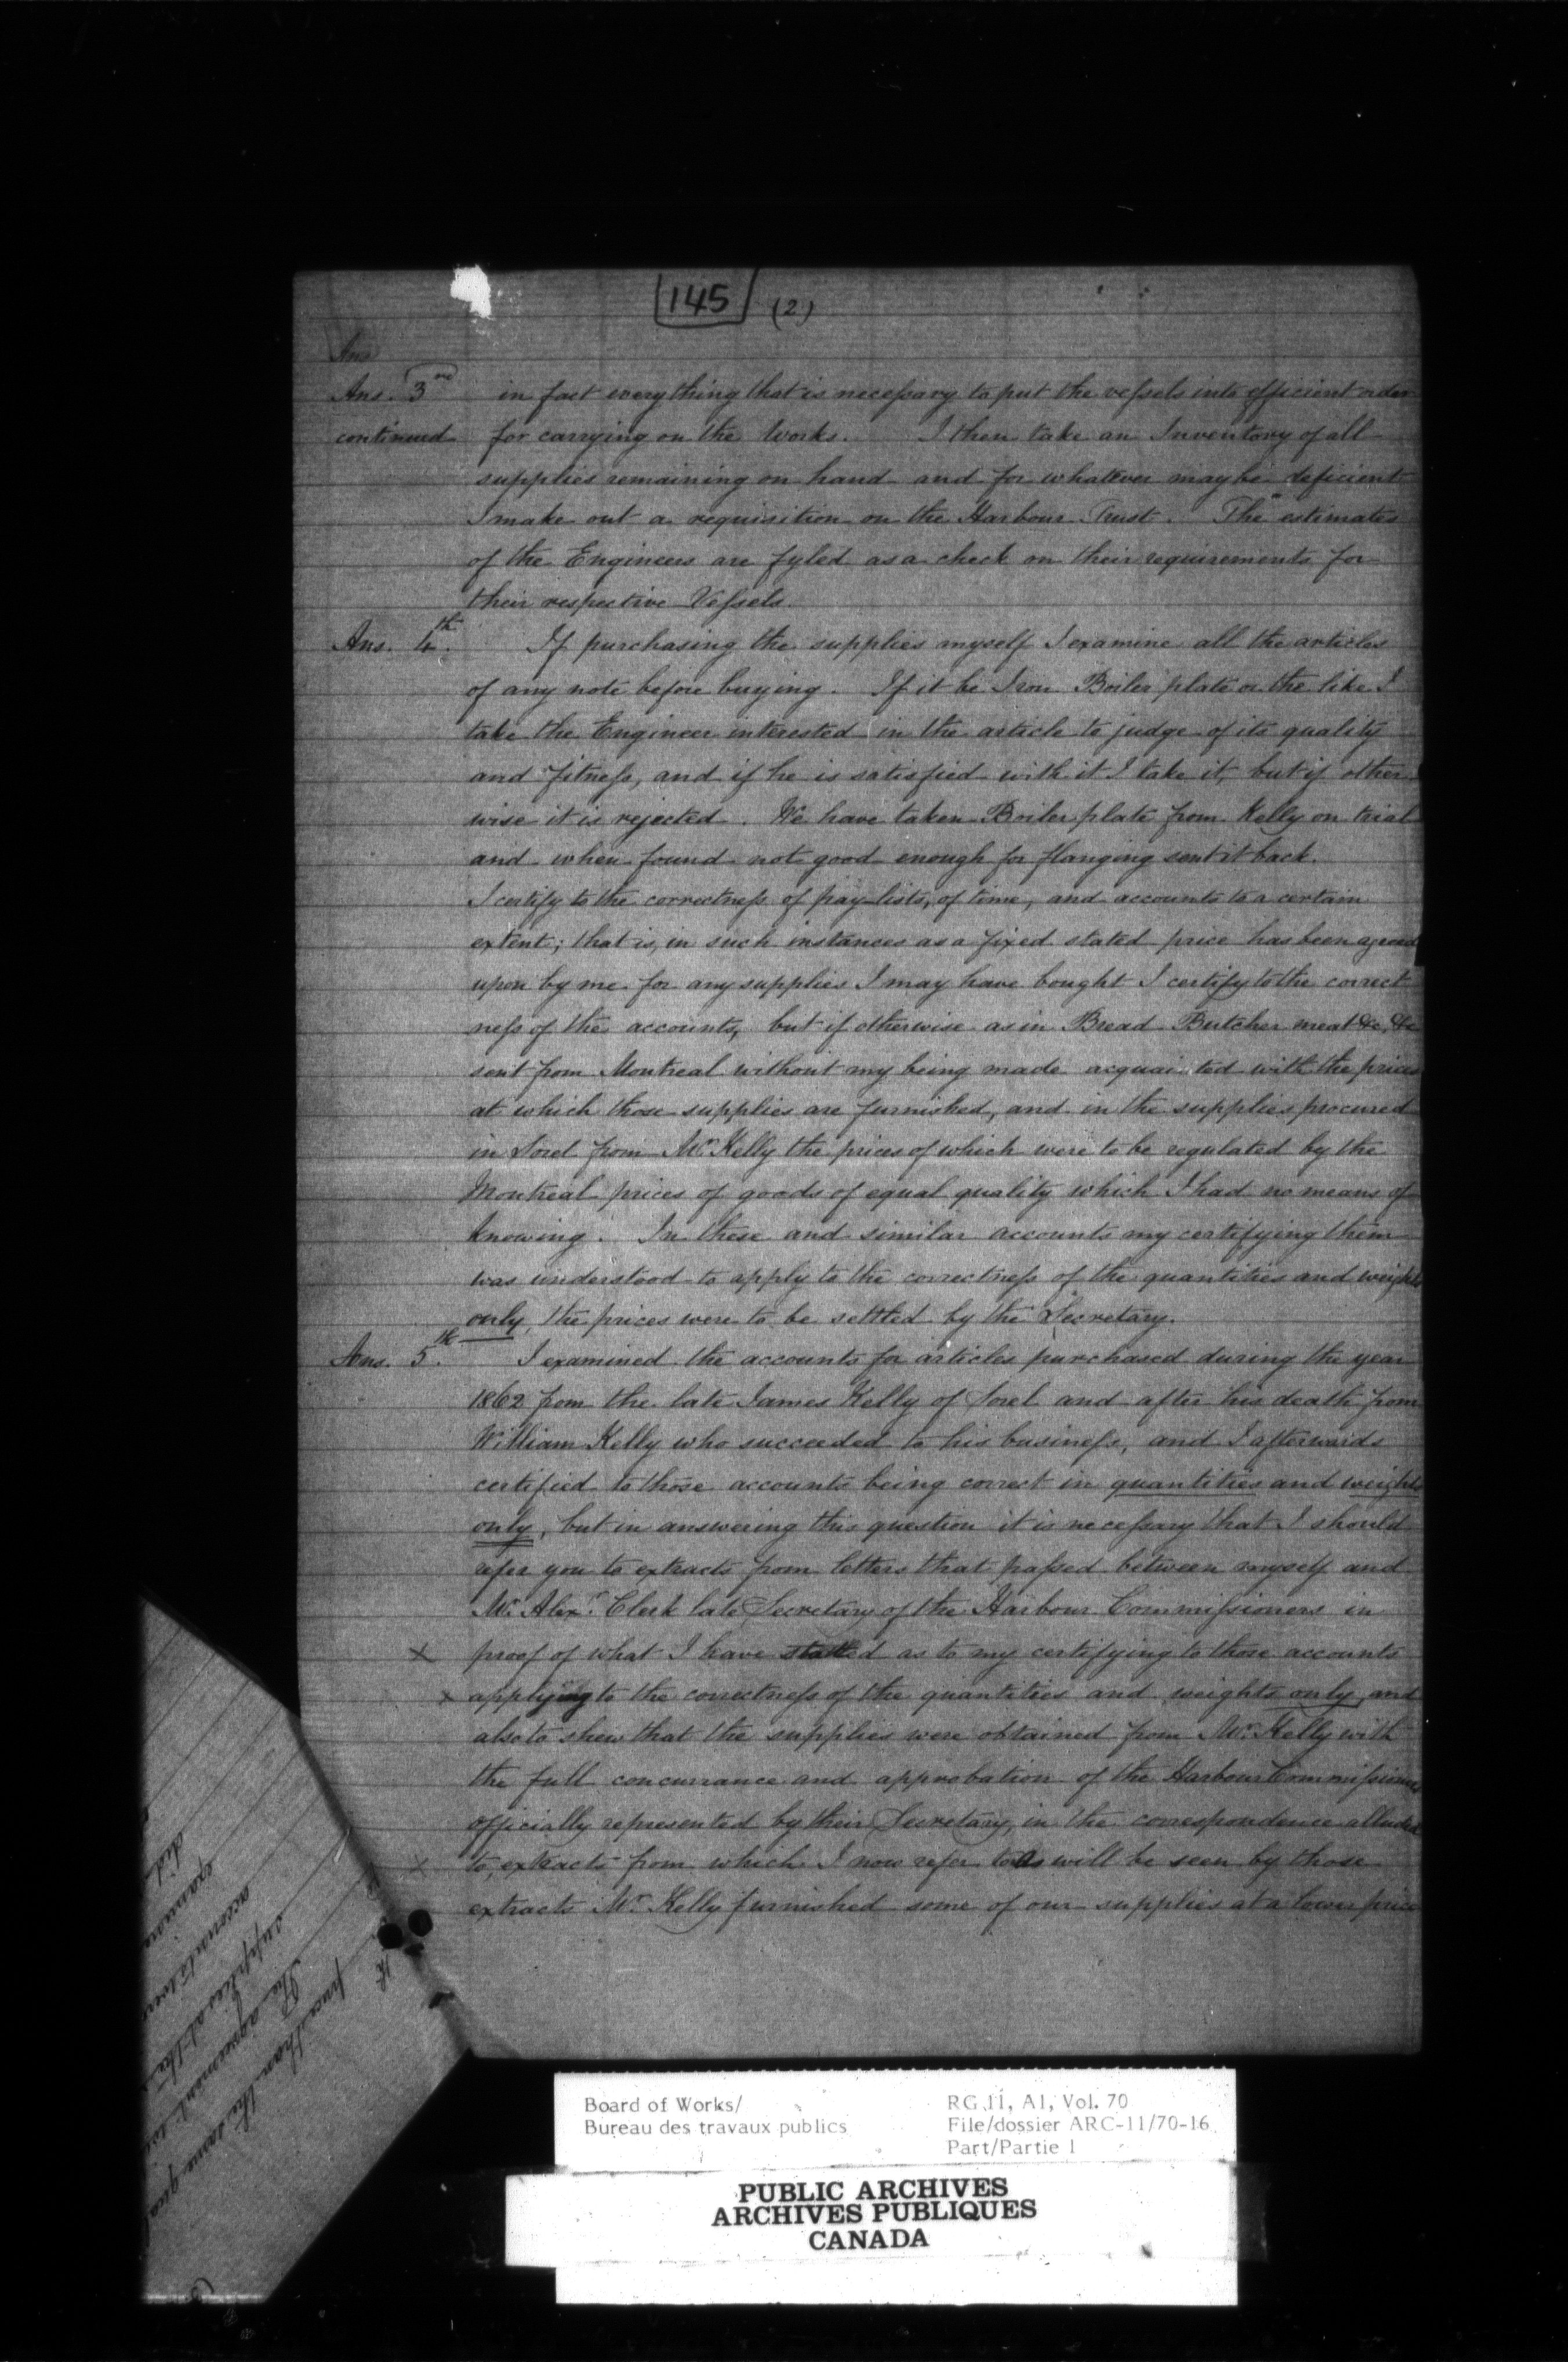 145 (2)
Ans
Ans. 3rd in fact everything that is necessary to put the vessels into efficient order
continued for carrying on the Works. I then take an Inventory of all
supplies remaining on hand and for whatever may be deficient
I make out a requisition on the Harbour Trust. The estimates
of the Engineers are fyled as a check on their requirements for
their respective Vessels.
Ans. 4th. If purchasing the supplies myself I examine all the articles
of any note before buying. If it be Iron Boiler plate or the like I
take the Engineer interested in the article to judge of its quality
and fitness, and if he is satisfied with it I take it, but if other
wise it is rejected. We have taken Boiler plate from Kelly on trial
and when found not good enough for flanging sent it back.
I certify to the correctness of pay-lists, of time, and accounts to a certain
extent; that is, in such instances as a fixed stated price has been agreed
upon by me for any supplies I may have bought I certify to the correct
ness of the accounts, but if otherwise as in Bread Butcher meat &c, &c
sent from Montreal without my being made acquainted with the prices
at which those supplies are furnished, and in the supplies procured
in Sorel from Mr. Kelly the prices of which were to be regulated by the
Montreal prices of goods of equal quality which I had no means of
knowing. In these and similar accounts my certifying them
was understood to apply to the correctness of the quantities and weights
only, the prices were to be settled by the Secretary.
Ans. 5th. I examined the accounts for articles purchased during the year
1862 from the late James Kelly of Sorel and after his death from
William Kelly who succeeded to his business, and I afterwards
certified to those accounts being correct in quantities and weights
only, but in answering this question it is necessary that I should
refer you to extracts from letters that passed between myself and
Mr. Alexr. Clerk late Secretary of the Harbour Commissioners in
x proof of what I have stated as to my certifying to those accounts
x applying to the correctness of the quantities and weights only, and
also to shew that the supplies were obtained from Mr. Kelly with
the full concurrance and approbation of the Harbour Commissioners
officially represented by their Secretary, in the correspondence alluded
x to, extracts from which I now refer to As will be seen by those
extracts Mr. Kelly furnished some of our supplies at a lower price
did
examine
accounts were
supplies at the
The agreement
price than the same qua
Board of Works/
Bureau des travaux publics
RG 11, A1, Vol. 70
File/dossier ARC-11/70-16
Part/Partie 1
PUBLIC ARCHIVES
ARCHIVES PUBLIQUES
CANADA